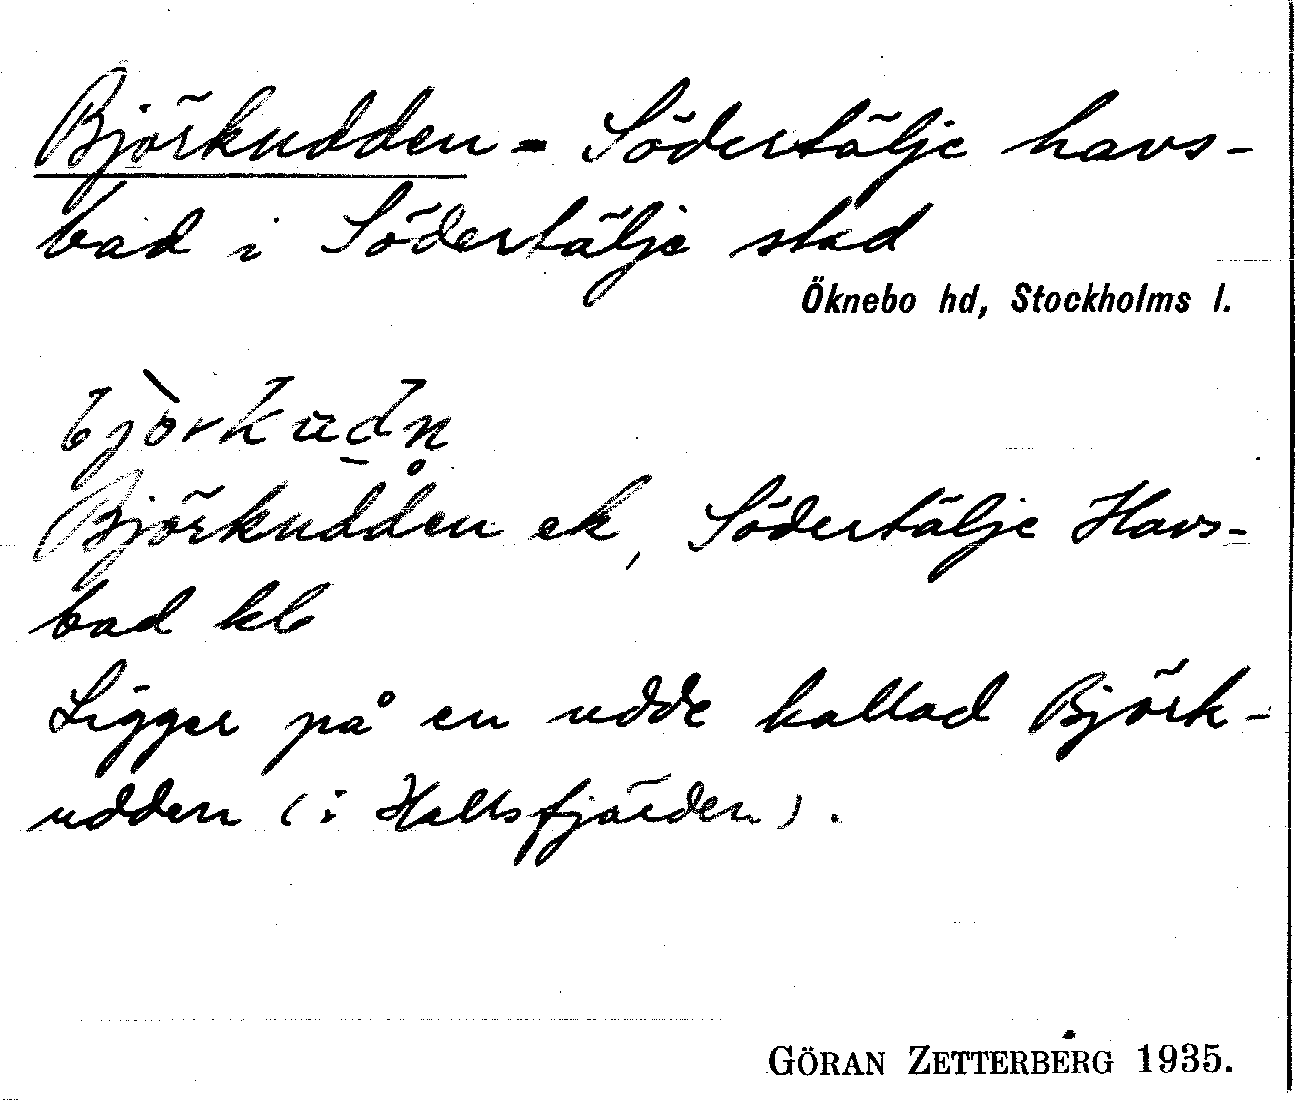 Björkudden = Södertälje havs-
bad i Södertälje stad
Öknebo hd, Stockholms l.
Björkudden ek, Södertälje Havs-
bad kb
Ligger på en udde kallad Björk-
udden (i Hallsfjärden).
GÖRAN ZETTERBERG 1935.